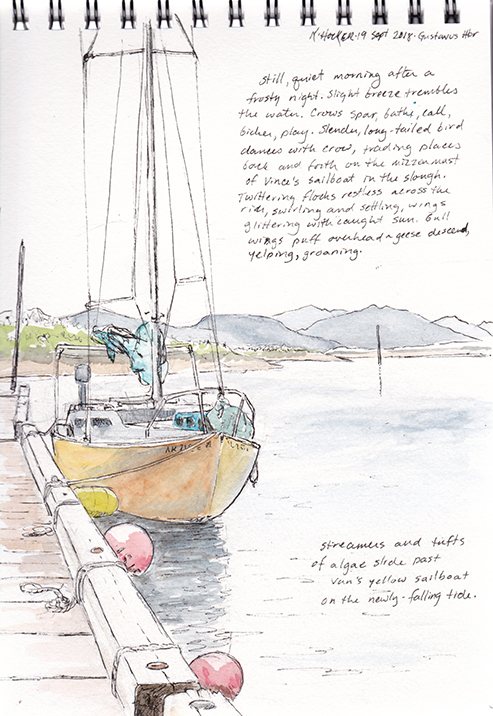 K. Hocker · 19 Sept 2018 · Gustavus Hbr
Still, quiet morning after a
frosty night. Slight breeze trembles
the water. Crows spar, bathe, call,
bicker, play. Slender, long-tailed bird
dances with crow, trading places
back and forth on the mizzenmast
of Vince's sailboat in the slough.
Twittering flocks restless across the
river, swirling and settling, wings
glittering with caught sun. Gull
wings puff overhead a geese descend,
yelping, groaning.
AK
streamers and tufts
of algae slide past
Van's yellow sailboat
on the newly-falling tide.